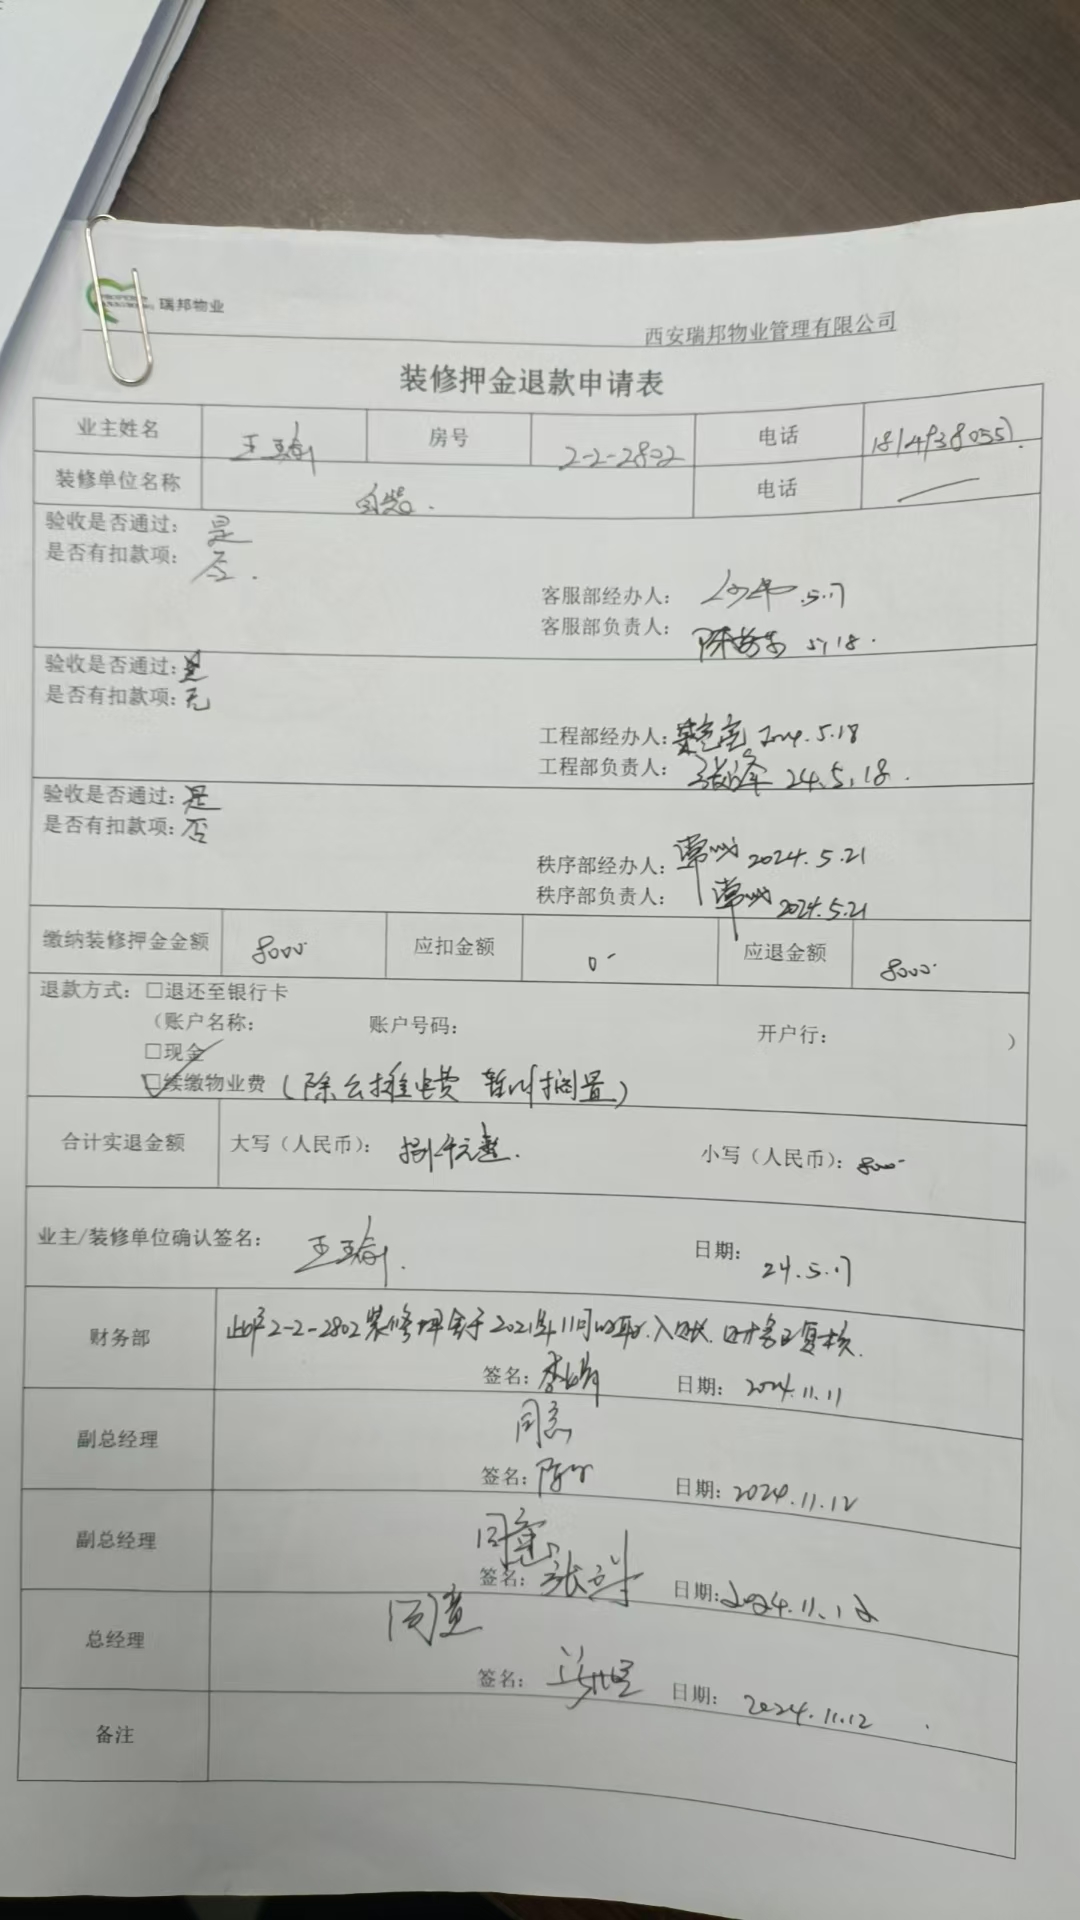 瑞邦物业
西安瑞邦物业管理有限公司
装修押金退款申请表
业主姓名 王瑜 房号 2-2-2802 电话
装修单位名称 自装. 电话
验收是否通过: 是
是否有扣款项: 否.
客服部经办人: 5.17
客服部负责人: 5.18.
验收是否通过: 是
是否有扣款项: 无
工程部经办人: 2024.5.18
工程部负责人: 24.5.18.
验收是否通过: 是
是否有扣款项: 否
秩序部经办人: 2024.5.21
秩序部负责人: 2024.5.21
缴纳装修押金金额 8000- 应扣金额 0- 应退金额 8000-
退款方式: □退还至银行卡
(账户名称: 账户号码: 开户行: )
□现金
□续缴物业费 (除公摊电费 暂时搁置)
合计实退金额 大写(人民币): 捌仟元整. 小写(人民币): 8000-
业主/装修单位确认签名: 王瑜. 日期: 24.5.17
财务部 此户2-2-2802装修押金于2021年11月收取.入账.财务已复核.
签名: 日期: 2024.11.11
副总经理 同意
签名: 日期: 2024.11.12
副总经理 同意
签名: 日期: 2024.11.12
总经理 同意
签名: 日期: 2024.11.12
备注